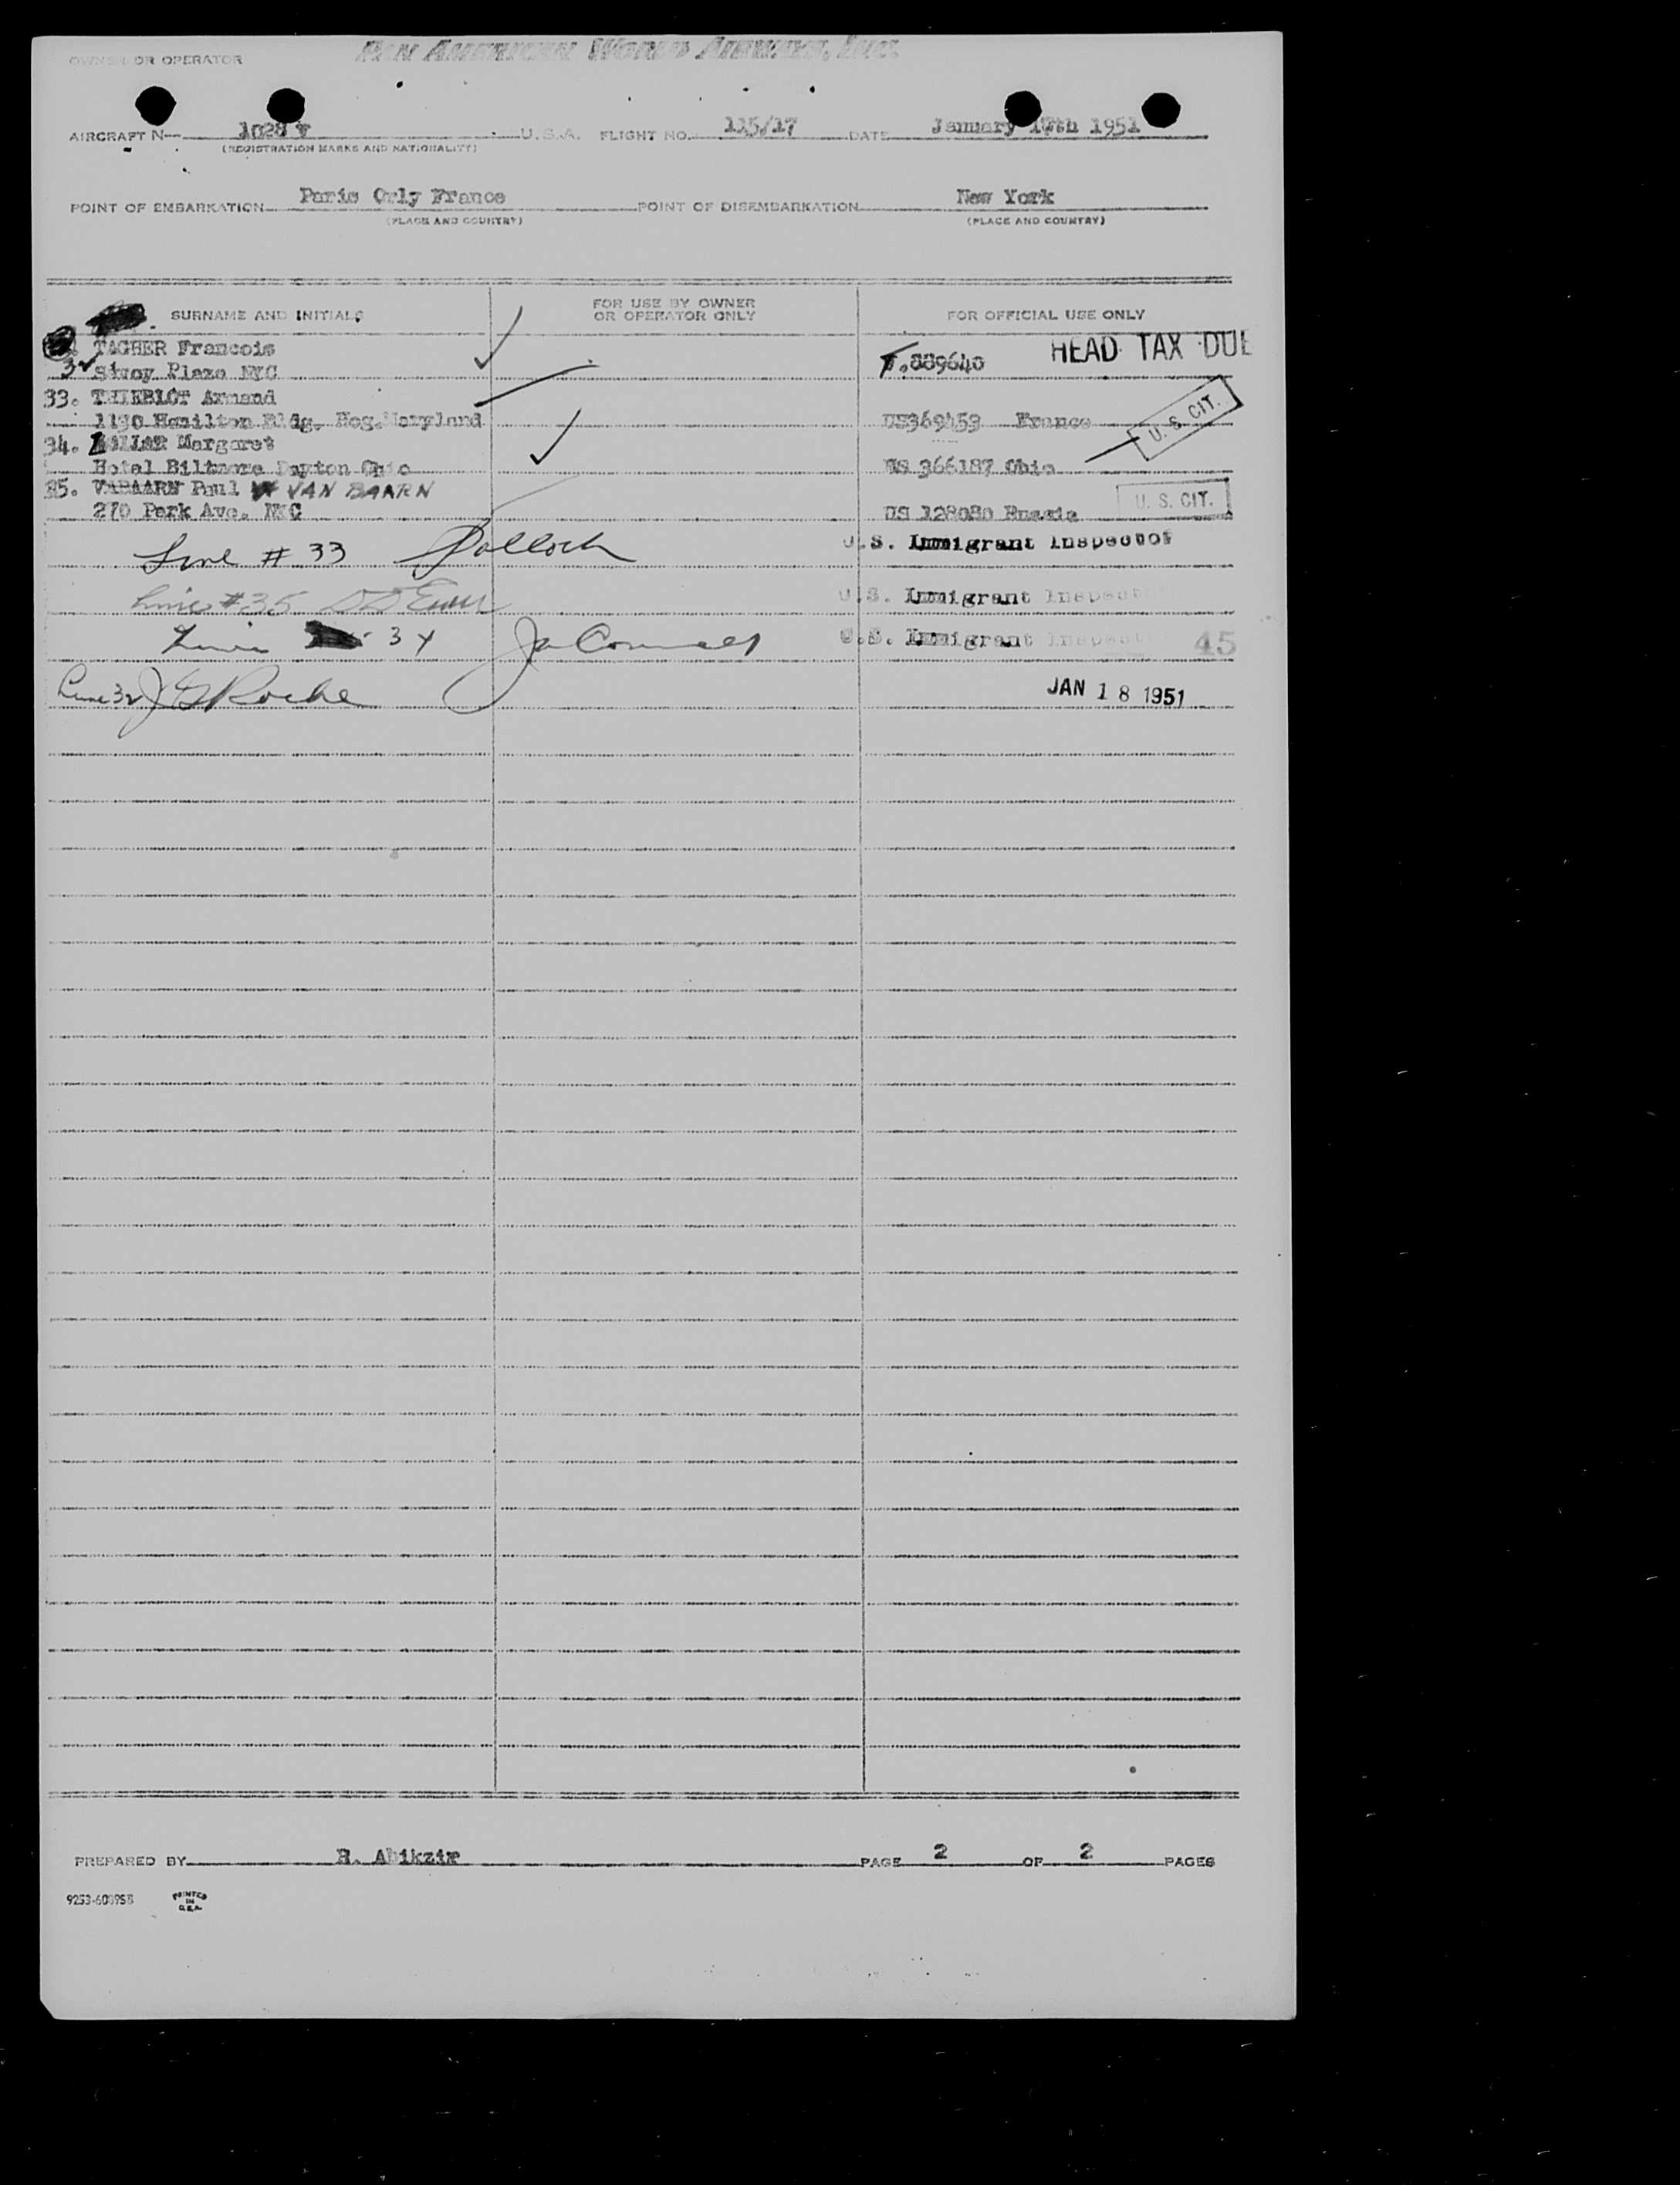 OWNER OR OPERATOR PAN AMERICAN WORLD AIRWAYS, INC.
AIRCRAFT N— 1028 V U.S.A. FLIGHT NO. 115/17 DATE January 17th 1951
(REGISTRATION MARKS AND NATIONALITY)
POINT OF EMBARKATION Paris Orly France POINT OF DISEMBARKATION New York
(PLACE AND COUNTRY) (PLACE AND COUNTRY)
SURNAME AND INITIALS FOR USE BY OWNER OR OPERATOR ONLY FOR OFFICIAL USE ONLY
TAGHER Francois HEAD TAX DUE
32 Plaza NYC 889640
33. THIEBLOT Armand
1130 Hamilton Bldg. Hog. Maryland US369453 France U. S. CIT.
34. Margaret
Hotel Biltmore Dayton Ohio US 366187 Ohio
35. VABAARN Paul VAN BAARN
270 Park Ave. NYC US 128080 Russia U. S. CIT.
Line # 33 Pollock U.S. Immigrant Inspector
Line # 35 U.S. Immigrant Inspect
Line 34 U.S. Immigrant Inspect 45
Line 32 J Roche JAN 18 1951
PREPARED BY R. Abikzir PAGE 2 OF 2 PAGES
9253-60895B PRINTED IN U.S.A.